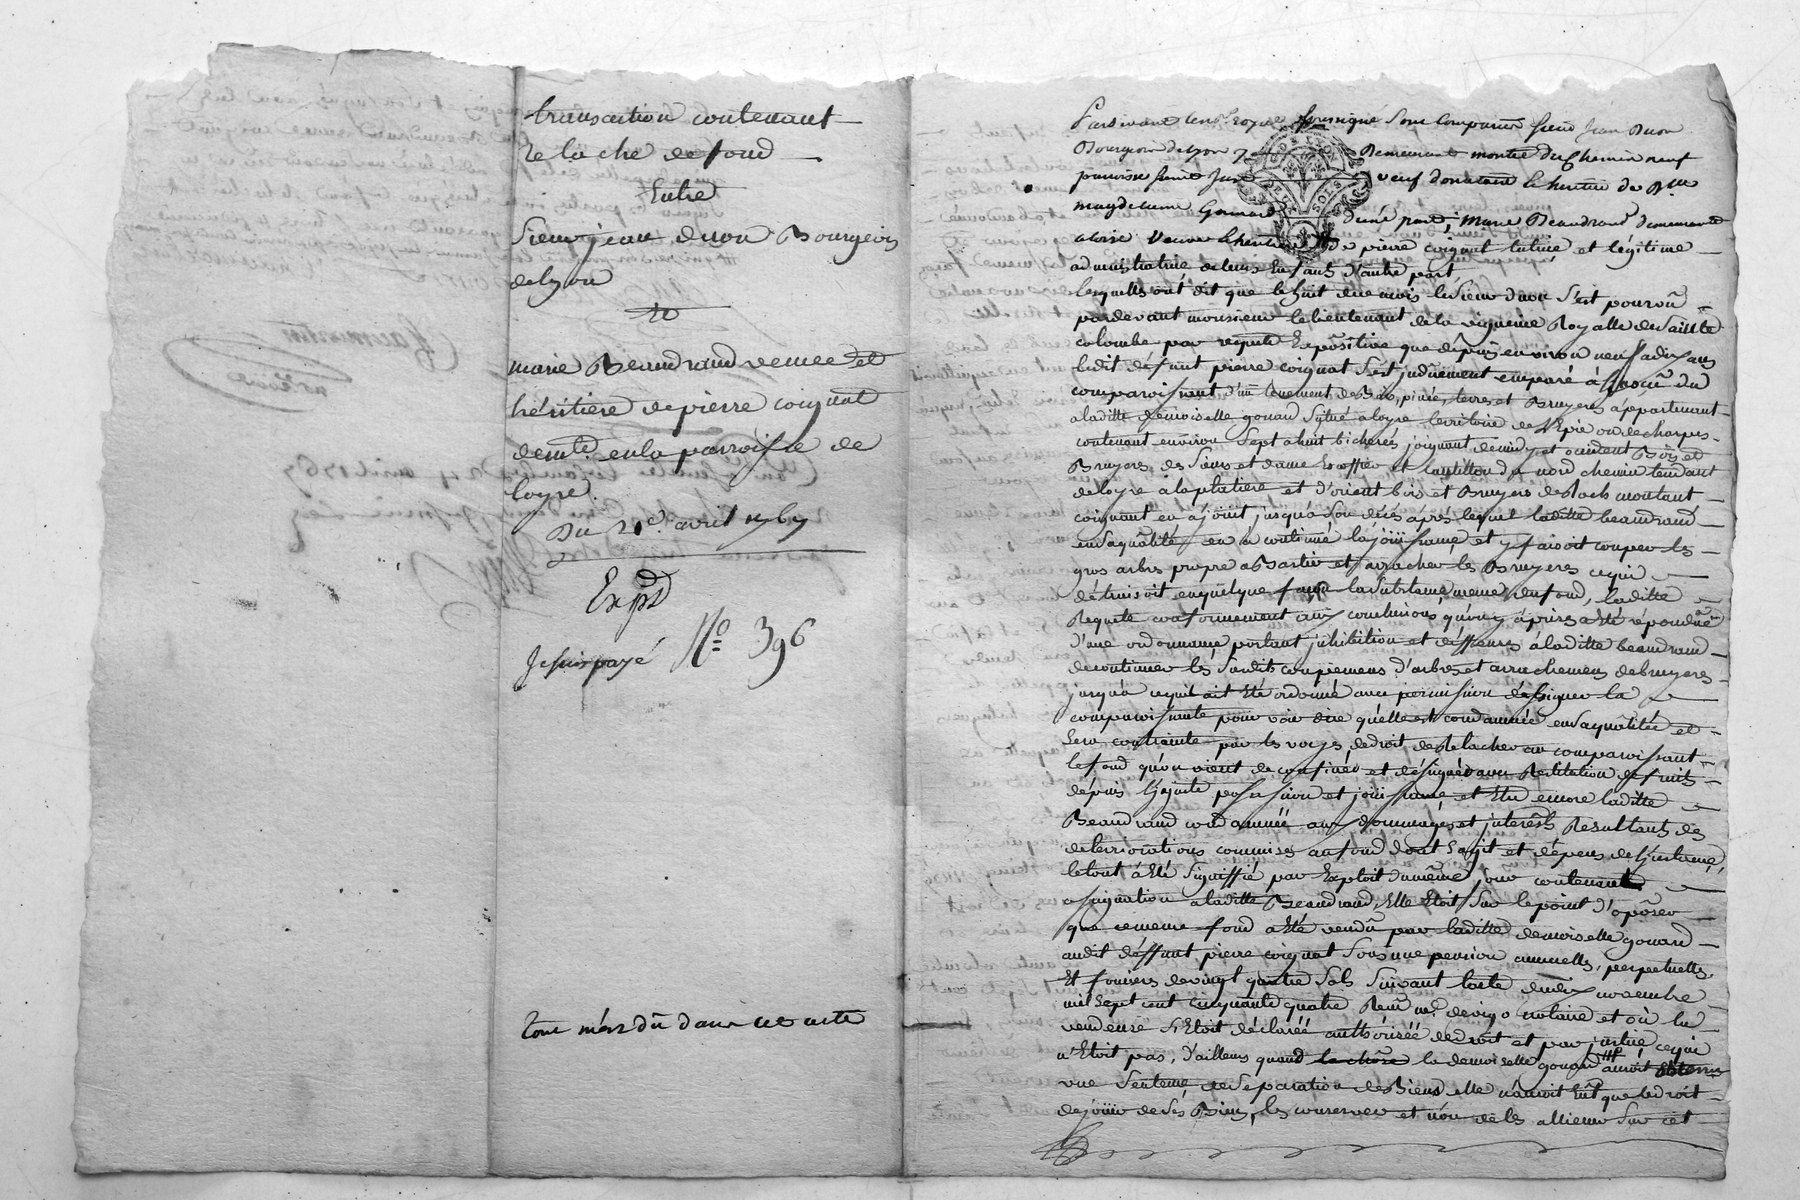 transaction contenant
relache de fond
Entre
Sieur jean duon Bourgeois
de lyon
et
marie Beaudrand veuve et
héritiere de pierre coignat
demte. en la parroisse de
loyre.
Du 21e. avril 1767
Expd
Je suis payé No. 396
tout més dû dans cet acte
Pardevant le nore. royal soussigné sont comparus sieur Jean Duon
Bourgeois de Lyon y demeurant montée du chemin neuf
paroisse saint Just veuf donataire et heritier de Dlle
magdelaine Gonard d'une part, marie Beaudrand demeurante
a loire veuve et heritiere de pierre coignat tutrice et légitime
administratrice de leurs enfants d'autre part
lesquelles ont dit que le huit du mois le sieur duon s'est pourvû
pardevant monsieur le lieutenant de la viguerie Royalle de sainte
colombe par requete Expôsitive que depuis environ neuf a dix ans
ledit défunt pierre coignat s'est induement emparé à l'insçu du
comparoissant d'un tenement de Bois, pinée, terres et Bruyeres appartenant
a laditte demoiselle gonard situé a loyre territoire de l'Epie ou de charpes
contenant environ sept a huit bicherées joignant de midy et occident Bois et
Bruyeres des sieurs et dame Escoffier et du nord chemin tendant
de loyre a la platiere et d'orient bois et Bruyeres de Roch montant
coignant en a joüit jusqu'a son décés aprés lequel laditte beaudrand
en sa qualité en a continué la joüissance et y faisoit couper les
gros arbres propre a Bastir et arracher les Bruyeres ce qui
détruisoit en quelque façon la substance même du fond, laditte
Requete conformement aux conclusions qu'on y a prises a été répondue
d'une ordonnance portant inhibition et deffenses a laditte beaudrand
de continuer les susdits coupemens d'arbres et arrachemens de bruyeres
jusqu'a ce qu'il ait été ordonné avec permission d'assigner la
comparoissante pour voir dire qu'elle est condamnée en sa qualitée et
sera contrainte par les voyes de droit de Relacher au comparoissant
le fond qu'on vient de confiner et désigner avec Restitution de fruits
depuis l'injuste possession et joüissance, et etre encore laditte
Beaudrand condamnée aux dommages et interêts Resultants des
deterriorations commises au fond dont s'agit et dépens de l'instance,
le tout a été signiffié par Exploit du même jour contenant
assignation a laditte Beaudrand, elle Etoit sur le point d'opôser
que ce meme fond a été vendû par laditte demoiselle gonard
audit déffunt pierre coignat sous une pension annuelle, perpetuelle,
et fonciere de vingt quatre sols suivant l'acte du dix novembre
mil sept cent cinquante quatre Reçu me. devigo notaire et où la
venderesse s'Etoit déclarée authorisée de droit et par justice ce qui
n'Etoit pas, d'ailleurs quand la chose la demoiselle gonard auroit obtenu
une sentence de separation de Biens elle n'auroit Eut que le droit
de joüir de ses Biens, les conserver et non de les alliener sur cet